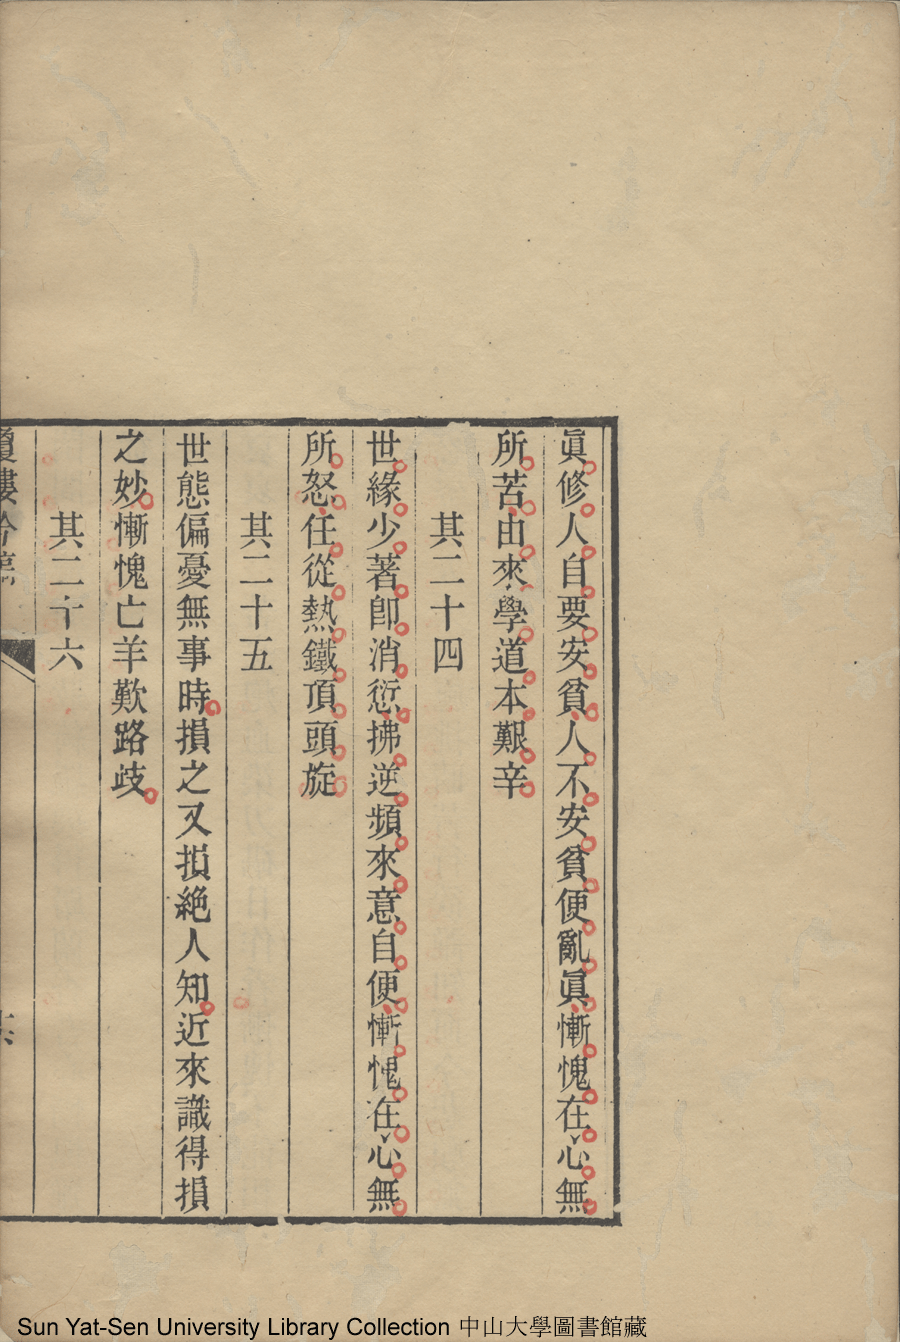 眞修人自要安貧人不安貧便亂眞慚愧在心無
所苦由來學道本艱辛
其二十四
世緣少著卽消愆拂逆頻來意自便慚愧在心無
所怒任從熱鐵頂頭旋
其二十五
世態偏憂無事時損之又損絶人知近來識得損
之妙慚愧亡羊歎路歧
其二十六
Sun Yat-Sen University Library Collection 中山大學圖書館藏